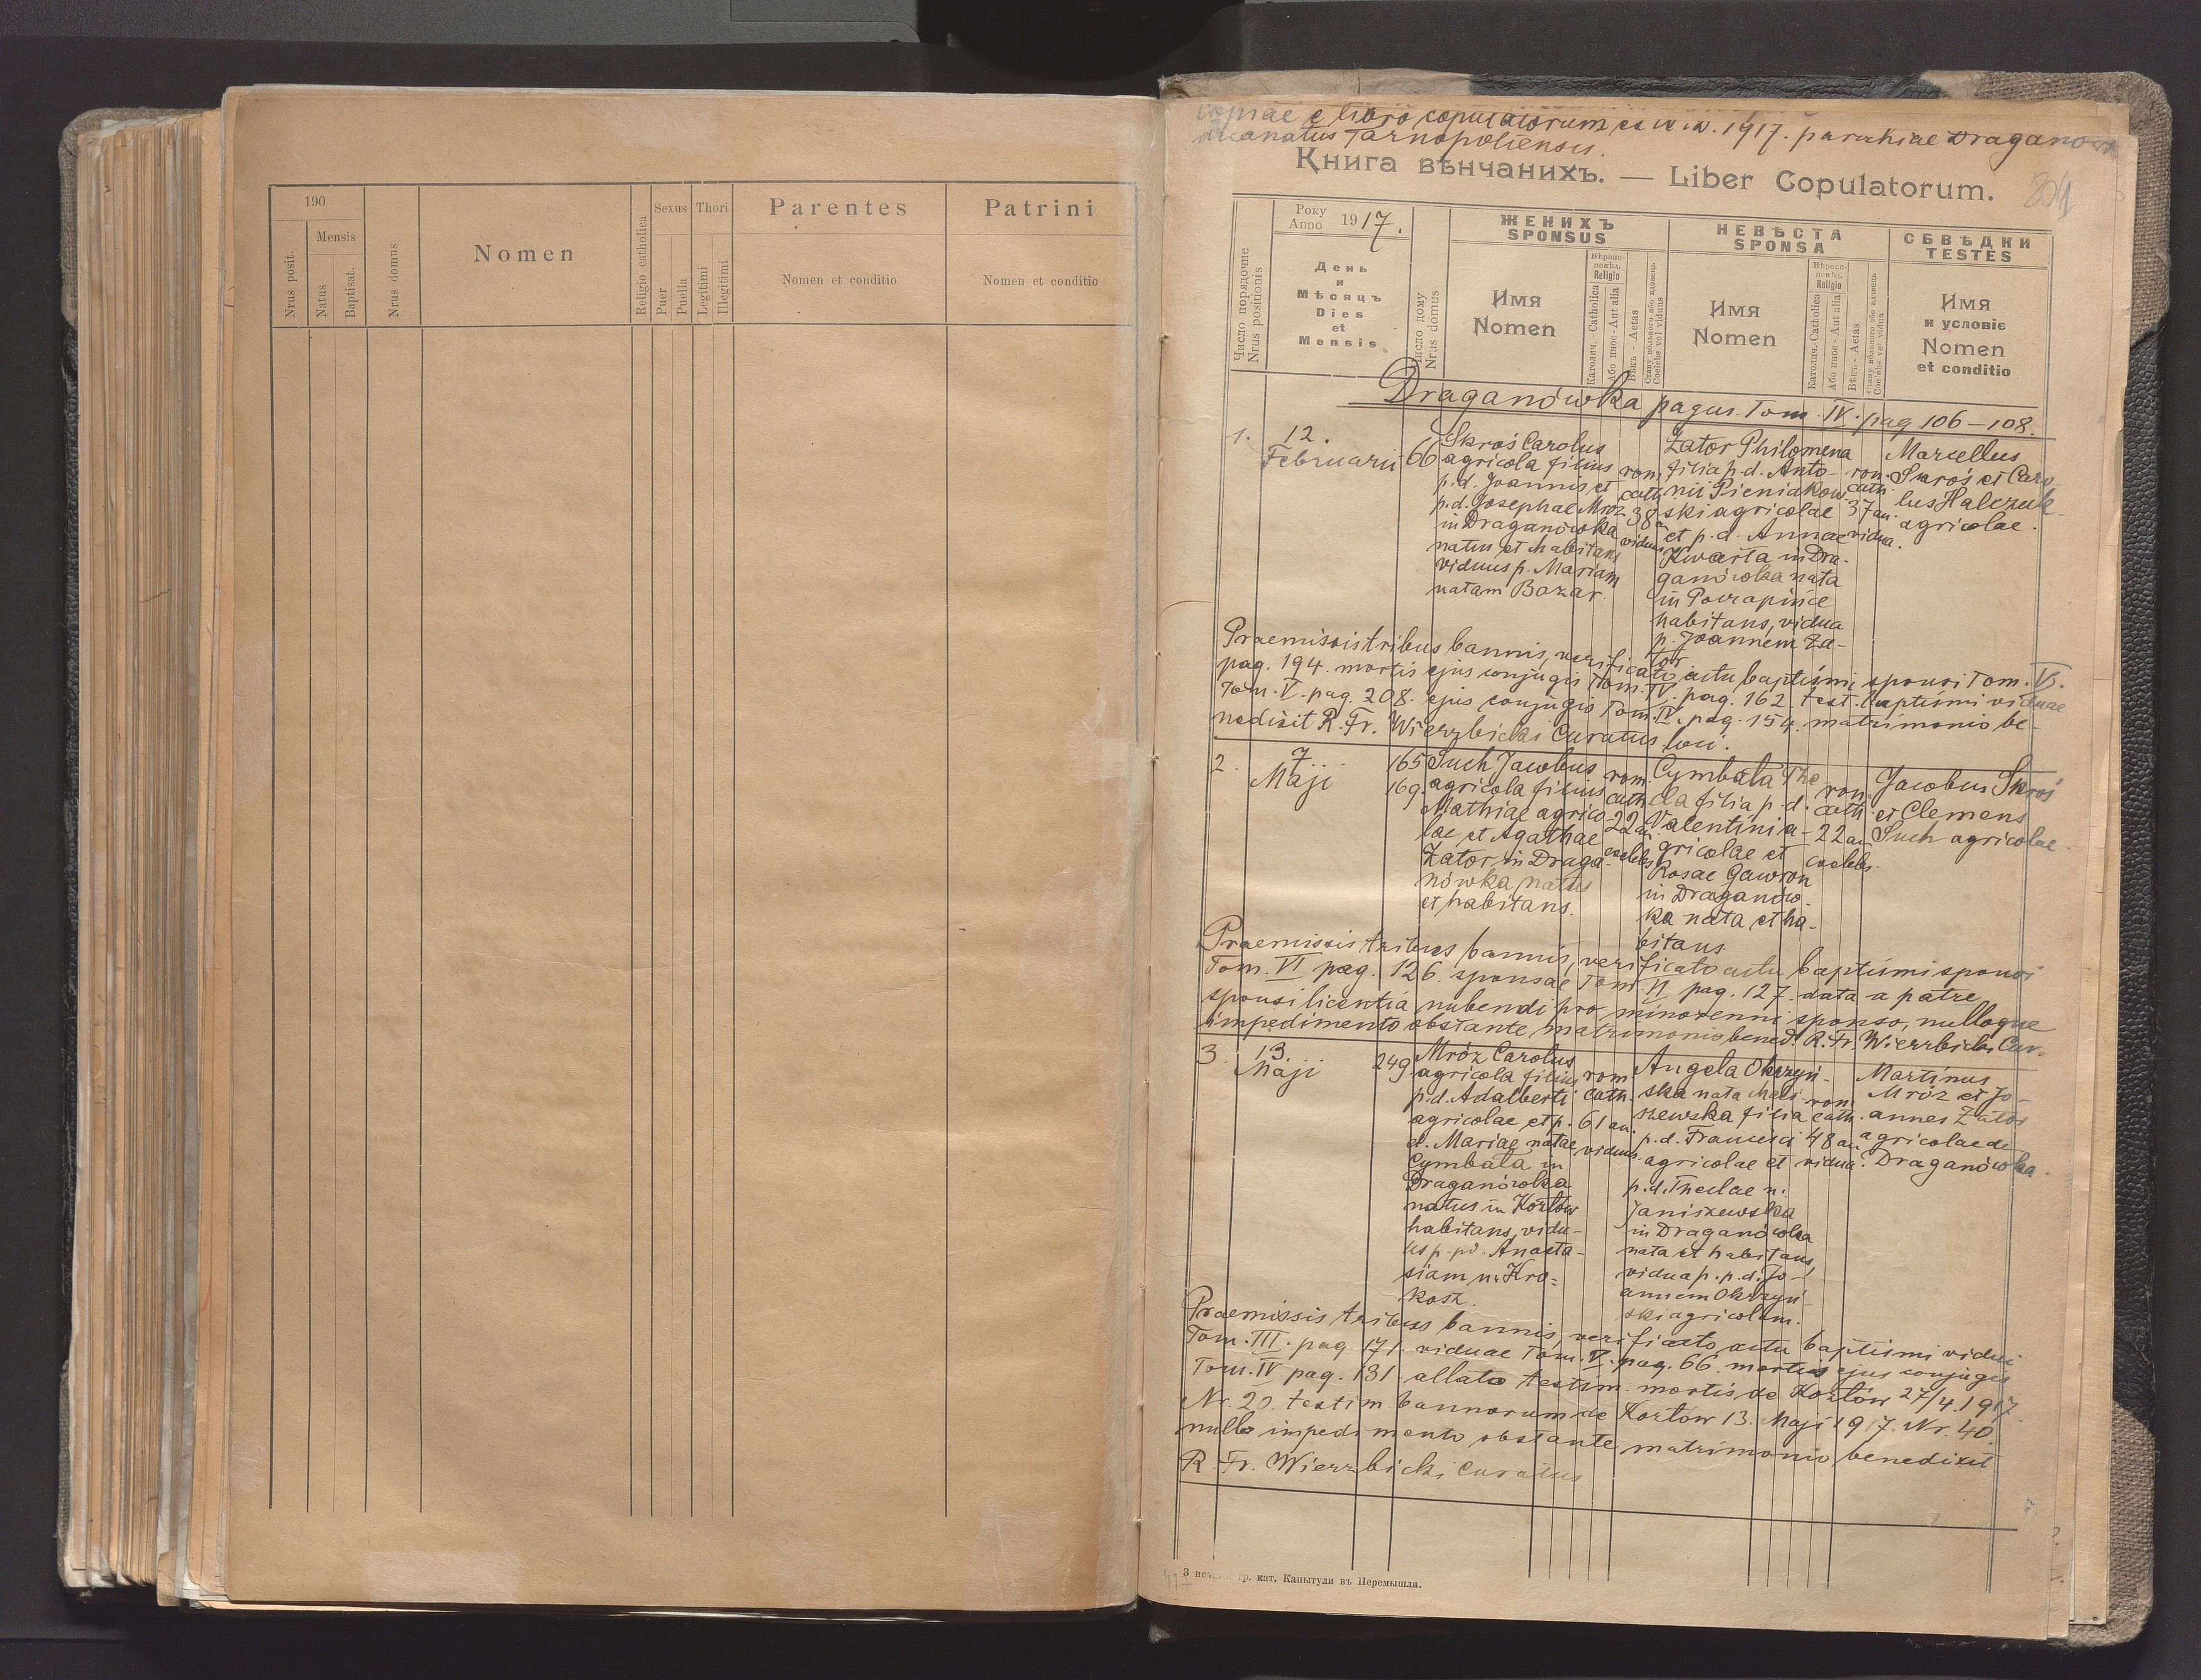 190
Mensis
Nrus posit.
Natus
Baptisat.
Nrus domus
Nomen
Religio catholica
Sexus
Puer
Puella
Thori
Legitimi
Illegitimi
Parentes
Nomen et conditio
Patrini
Nomen et conditio
copiae e libro copulatorum ex 1917. parochiae Draganówka
decanatus Tarnopoliensis.
Книга вѣнчанихъ. — Liber Copulatorum.
204
Число порядочне
Nrus positionis
Року
Anno 1917.
День
и
Мѣсяцъ
Dies
et
Mensis
Число дому
Nrus domus
ЖЕНИХЪ
SPONSUS
Имя
Nomen
Religio
Католич. - Catholica
Або иное - Aut alia
Вѣкъ - Aetas
Coelebs vel viduus
НЕВѢСТА
SPONSA
Имя
Nomen
Religio
Католич. - Catholica
Або иное - Aut alia
Вѣкъ - Aetas
Coelebs vel vidua
СБВѢДКИ
TESTES
Имя
и условіе
Nomen
et conditio
Draganówka pagus. Tom. IV. pag 106–108.
1.
12.
Februarii
66
Skroś Carolus
agricola filius
p.d. Joannis et
p.d. Josephae Mróz
in Draganówka
natus et habitans
viduus p. Mariam
natam Bazar.
rom.
cath.
38 a
viduus
Zator Philomena
filia p.d. Anto-
nii Pieniakow-
ski agricolae
et p.d. Annae
Kwarta in Dra-
ganówka nata
in Poczapińce
habitans, vidua
p. Joannem Za-
tor
rom.
cath.
37 an.
vidua.
Marcellus
Skroś et Caro-
lus Halczuk
agricolae.
Praemissis tribus bannis, verificato actu baptismi sponsi Tom. V.
pag. 194. mortis ejus conjugis Tom. IV. pag. 162 test. baptismi viduae
Tom. V. pag. 208. ejus conjugis Tom. IV. pag. 154. matrimonio be-
nedixit R. Fr. Wierzbicki Curatus loci.
2.
7.
Maji
165
169.
Such Jacobus
agricola filius
Mathiae agrico-
lae et Agathae
Zator, in Draga-
nówka natus
et habitans.
rom.
cath
22 a.
coelebs
Cymbała The
cla filia p.d.
Valentini a-
gricolae et
Rosae Gawron
in Draganów-
ka nata et ha-
bitans.
rom.
cath
22 an
coelebs.
Jacobus Skroś
et Clemens
Such agricolae.
Praemissis tribus bannis, verificato actu baptismi sponsi
Tom. VI pag. 126. sponsae Tom. VI pag. 127. data a patre
sponsi licentia nubendi pro minorenni sponso, nulloque
impedimento obstante matrimonio bened. R. Fr. Wierzbicki Cur.
3.
13.
Maji
249.
Mróz Carolus
agricola filius
p.d. Adalberti
agricolae et p.
d. Mariae natae
Cymbała in
Draganówka
natus in Kozłów
habitans, vidu-
us p. pd. Anasta-
siam n. Kra=
kosz.
rom.
cath.
61 an.
viduus.
Angela Okrzyń-
ska nata Mali
szewska filia
p.d. Francisci
agricolae et
p.d. Theclae n.
Janiszewska
in Draganówka
nata et habitans,
vidua p. p.d. Jo-
annem Okrzyń-
ski agricolam.
rom.
cath.
48 an.
vidua.
Martinus
Mróz et Jo-
annes Zator
agricolae de
Draganówka.
Praemissis tribus bannis, verificato actu baptismi vidui
Tom. III. pag. 171. viduae Tom. V. pag. 66 mortis ejus conjugis
Tom. IV pag. 131. allato testim. mortis de Kozłów 27/4. 1917
Nr. 20. testim. bannorum de Kozłów 13. Maji 1917. Nr. 40.
nullo impedimento obstante matrimonio benedixit
R. Fr. Wierzbicki Curatus
гр. кат. Капитули въ Перемышли.